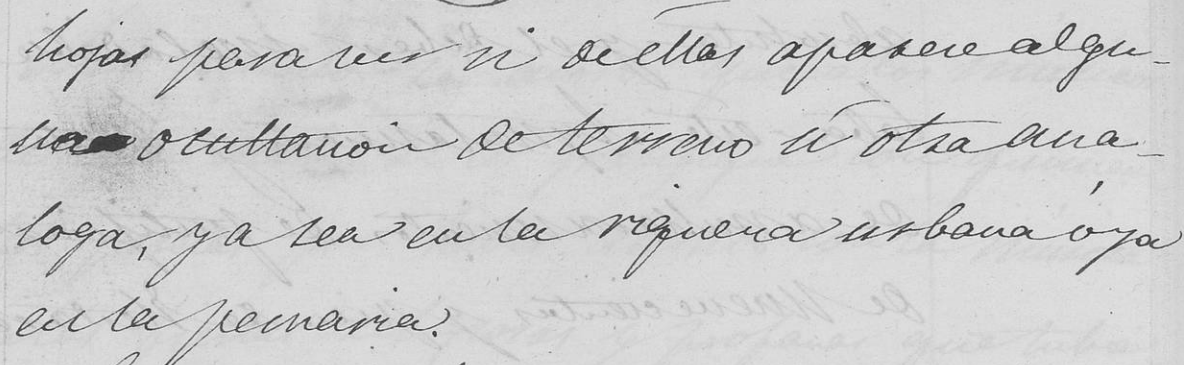 hojas para ver si de ellas aparece algu-
na ocultación de terreno ú otra aná-
loga, ya sea en la riqueza urbana ó ya
en la pecuaria.